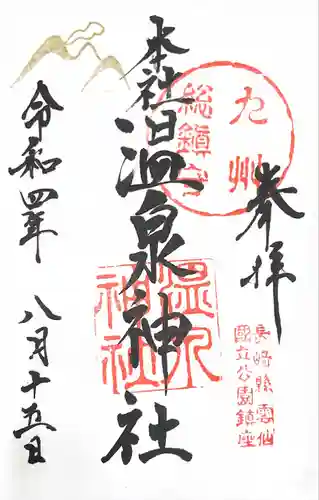 奉拝
九州
総鎮守
長崎縣雲仙
國立公園鎮座
本社
温泉神社
温泉
神社
令和四年
八月十五日